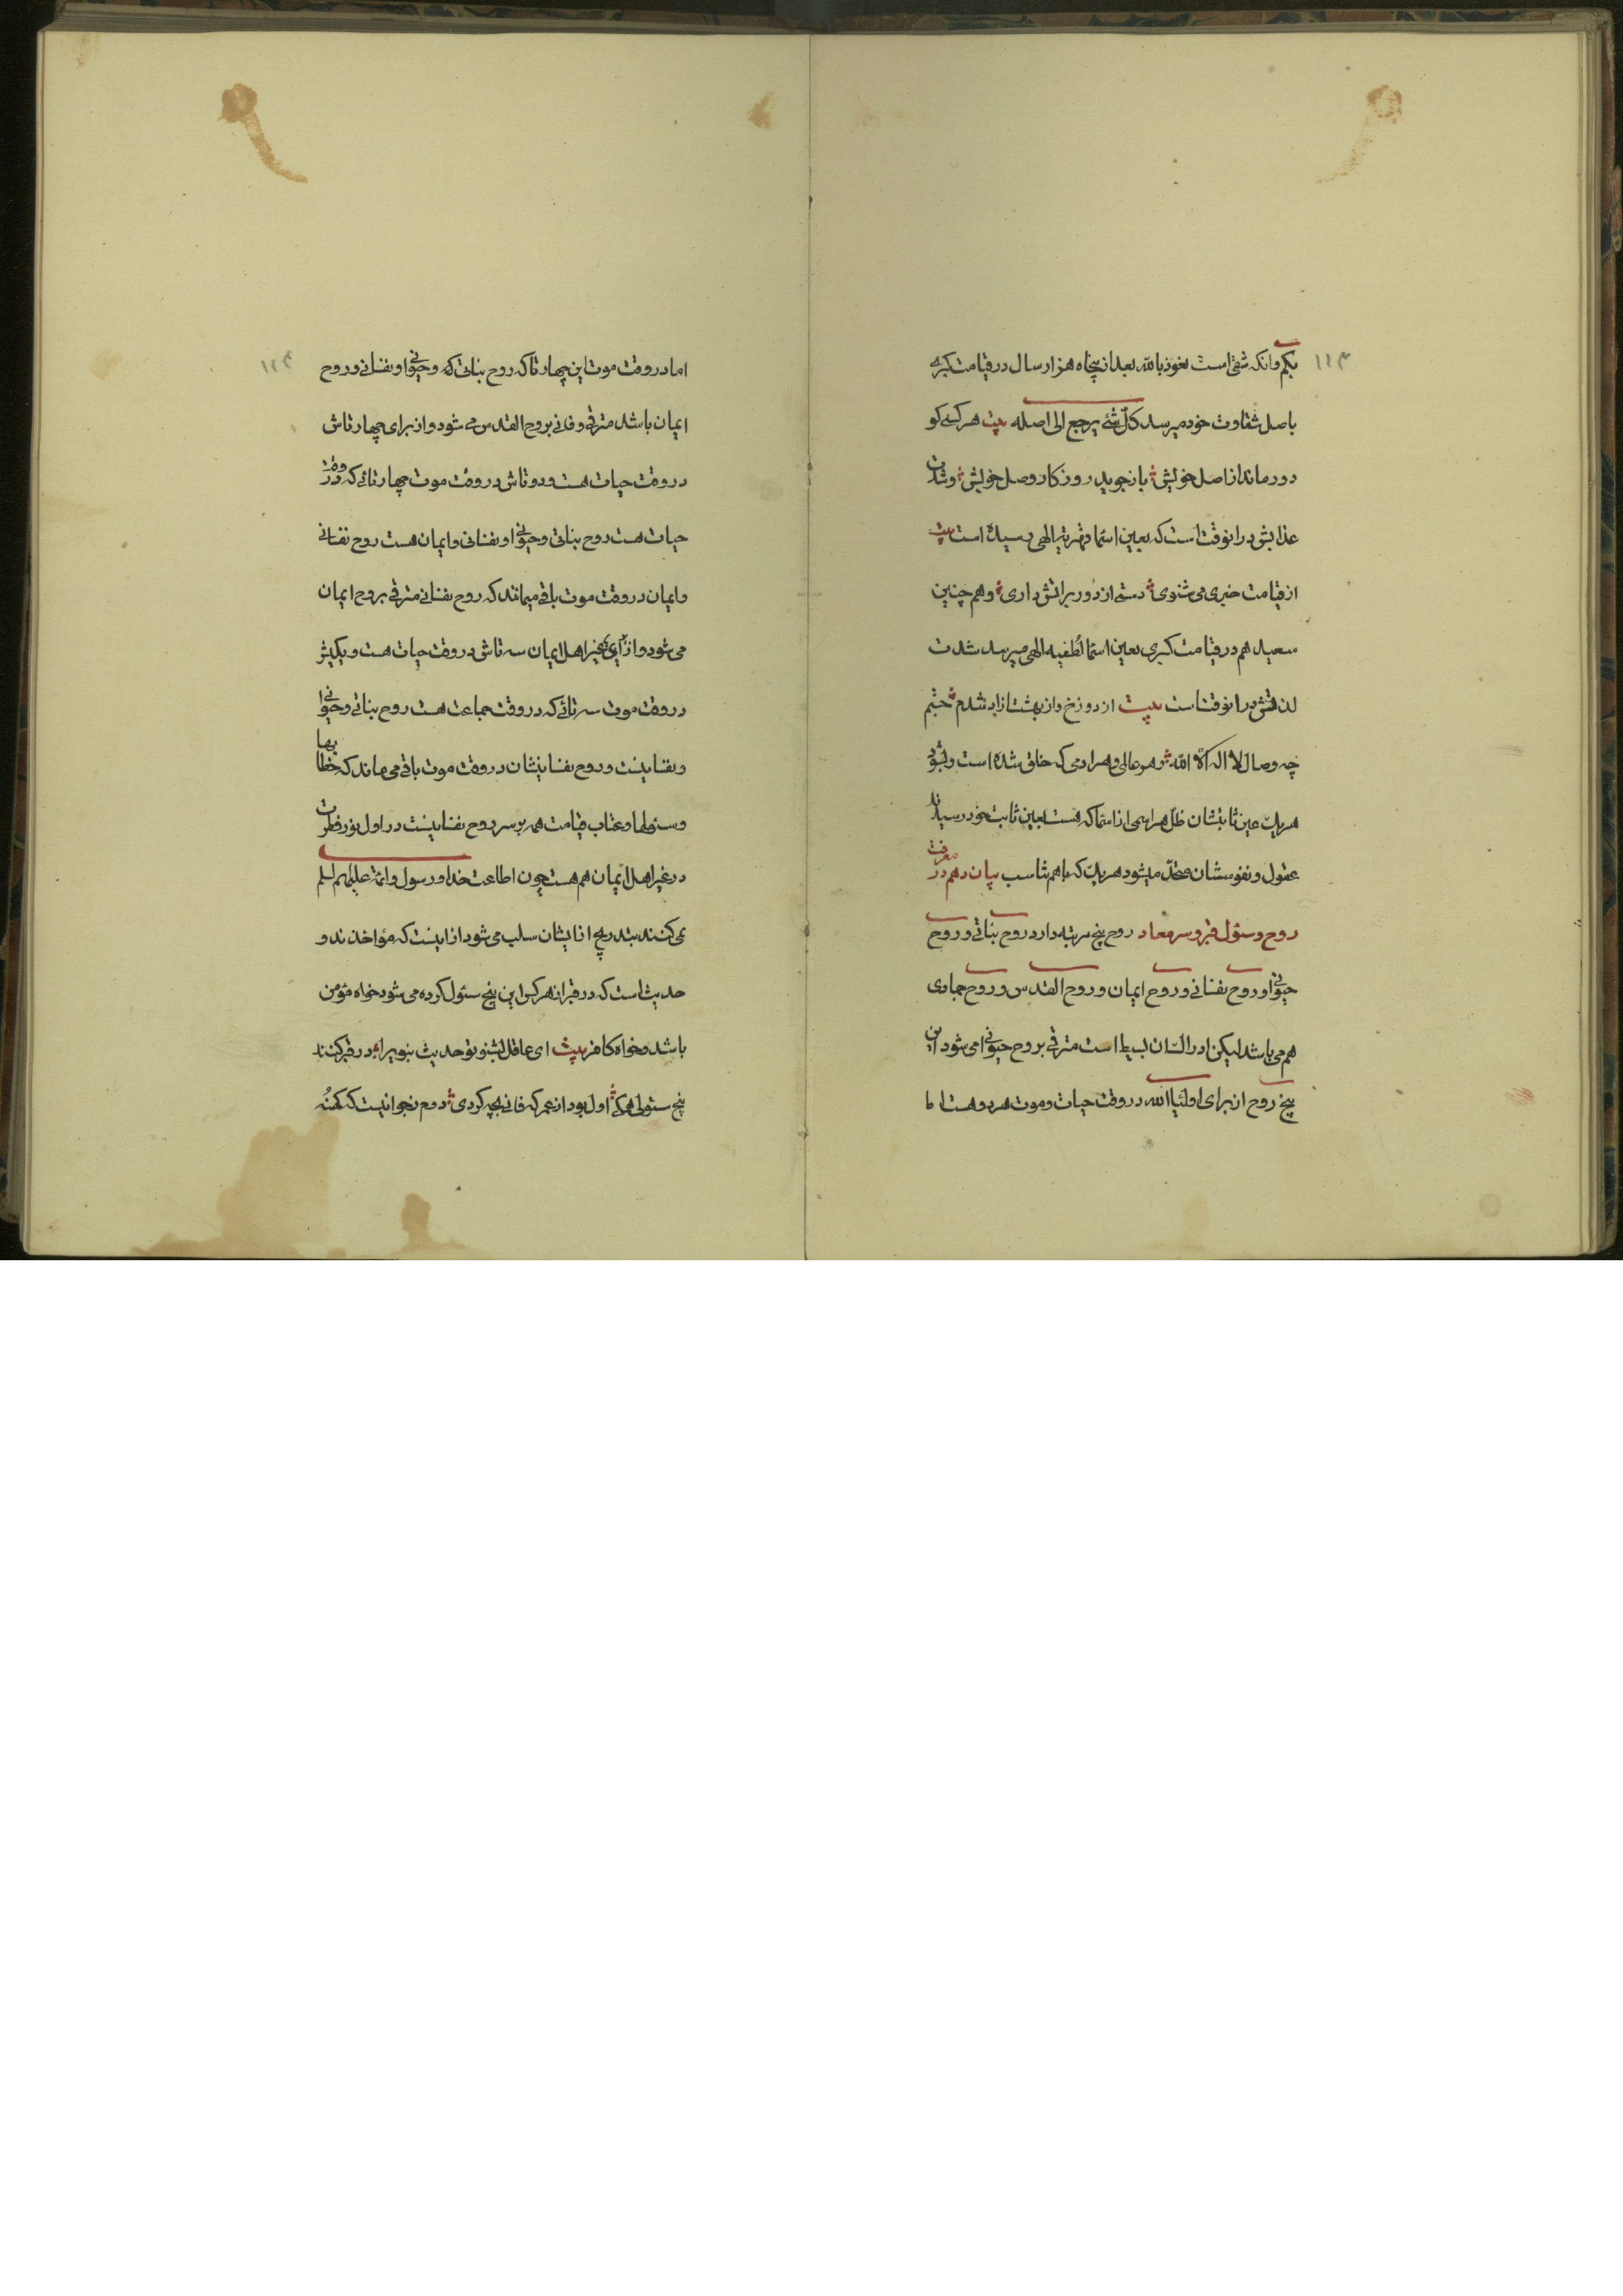 ۱۱۳
بکم وانکه شقی است نعوذ بالله بعد از پنجاه هزار سال در قیامت کبری
باصل شقاوت خود میرسد کل شئ یرجع الی اصله بیت هر کسی کو
دور ماند از اصل خویش باز جوید روزکار وصل خویش وشدت
عذابش در انوقت است که بعین اسماء قهریه الهی رسیده است بیت
از قیامت خبری می شنوی دستی از دور بر اتش داری وهم چنین
سعید هم در قیامت کبری بعین اسماء لطفیه الهی میرسد شدت
لذتش در انوقت است بیت از دوزخ واز بهشت ازاد شدم
چه وصال لا اله الا الله وهر عالی وهر ادمی که خلق شده است
هر یک عین ثابتشان ظل هر اسمی از اسما که هست بعین ثابت خود رسیدند
عقول ونفوسشان متحد میشود هر یک که باهم تناسب بیان دهم در معرفت
روح وسئول قبر وسر معاد روح پنج مرتبه دارد روح بناتی وروح
حیوانی وروح نفسانی وروح ایمان وروح القدس وروح جمادی
هم می باشد لیکن در انسان بسیط است مترقی بروح حیوانی می شود این
پنج روح از برای اولیاء الله در وقت حیات وموت هر دو هست اما
۱۱۴
اما در وقت موت این چهار تا که روح بناتی که وحیوانی ونفسانی وروح
ایمان باشد مترقی وفانی بروح القدس می شود واز برای چهار تاش
در وقت حیات هست ودو تاش در وقت موت چهار تائی که در وقت
حیات هست روح بناتی وحیوانی ونفسانی وایمان هست روح نفسانی
وایمان در وقت موت باقی میماند که روح نفسانی مترقی بروح ایمان
می شود واز برای غیر اهل ایمان سه تاش در وقت حیات هست ویکیش
در وقت موت سه تائی که در وقت حیات هست روح بناتی وحیوانی
ونفسانیست وروح نفسانیشان در وقت موت باقی می ماند که خطابها
وسئولها وعتاب قیامت همه بر سر روح نفسانیست در اول نور فطرت
در غیر اهل ایمان هم هست چون اطاعت خدا ورسول وائمه علیهم السلم
نمی کنند بتدریج از ایشان سلب می شود از اینست که مؤاخذند و
حدیث است که در قبر از هر کس این پنج سئول کرده می شود خواه مؤمن
باشد وخواه کافر بیت ای عاقل بشنو تو حدیث در قبر کنند
پنج سئولی اول بود از عمر که فانی بچه کردی دوم ز جوانیت که کهنه